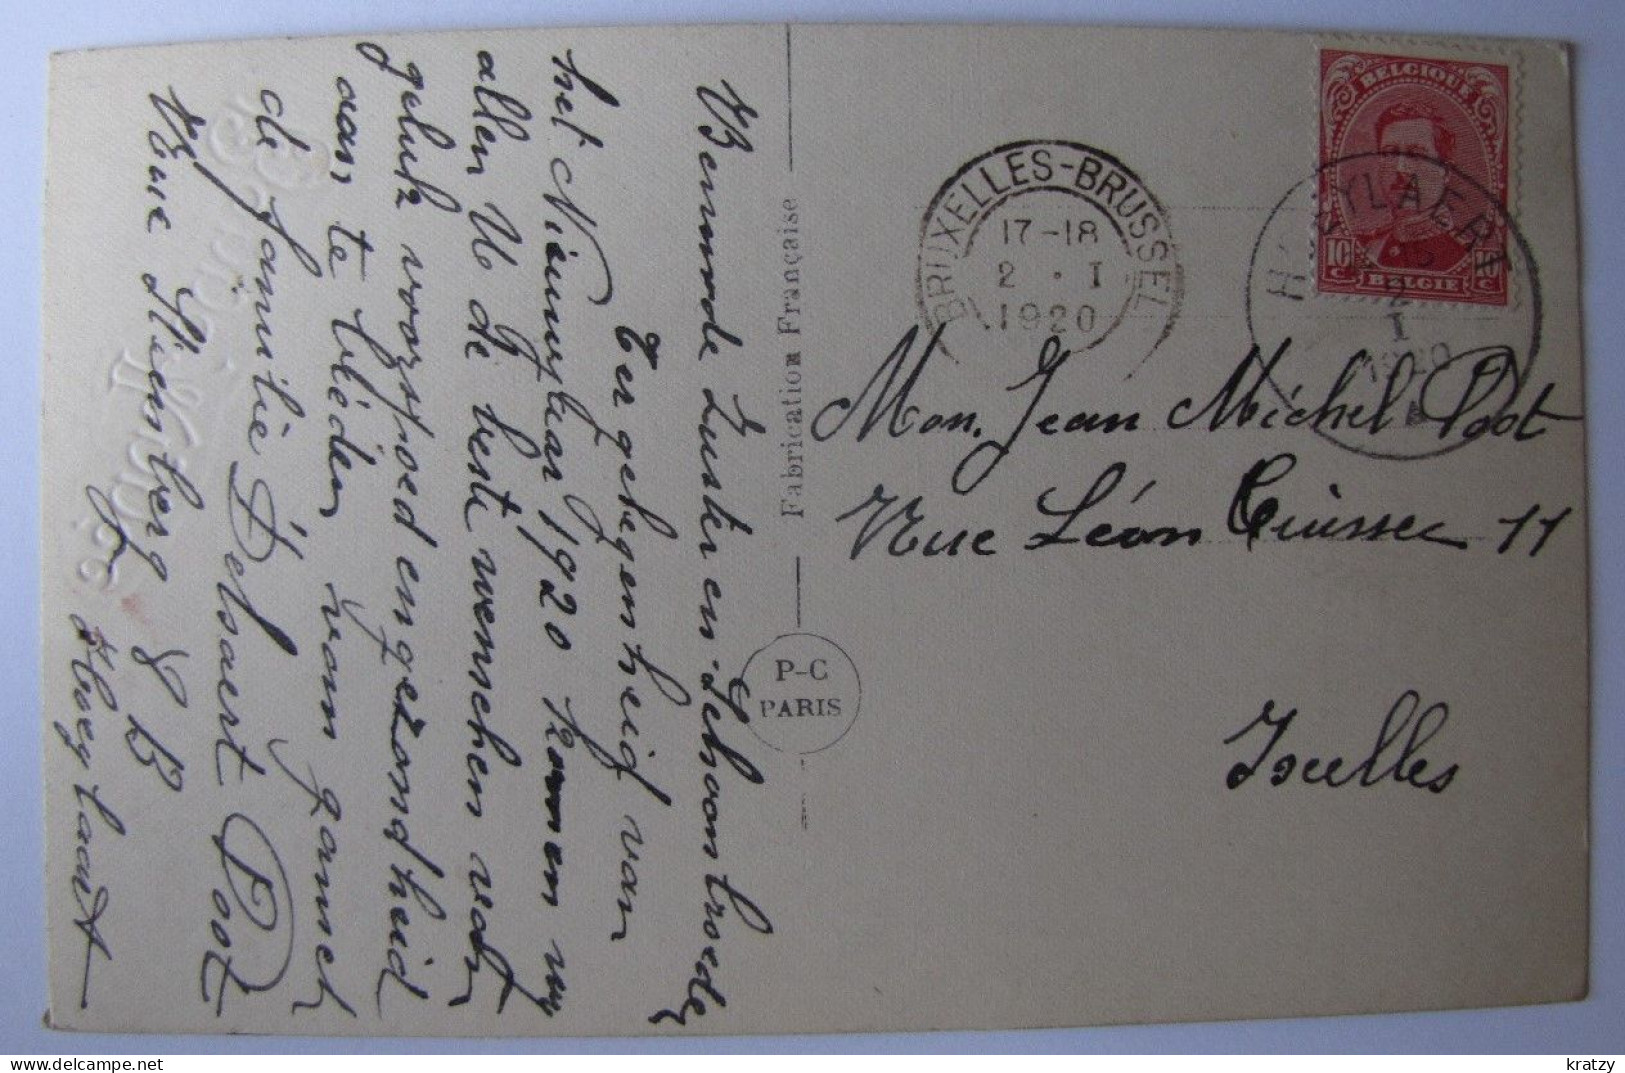 Beminde Zuster en Schoonbroeder
Ter gelegenheid van
het Nieuwjaar 1920 komen wy
allen U de beste wenschen van
geluk voorspoed en gezondheid
aan te biéden van gansch
de familie Delsaert Poot
Rue Steenberg 8 B
Hoeylaart
Fabrication Française
P-C
PARIS
BELGIQUE
10 C
10 C
BELGIE
BRUXELLES-BRUSSEL
17-18
2 · I
1920
HOEYLAERT
I
1920
Mon. Jean Michel Poot
Rue Léon Cuissez 11
Ixelles
kratzy